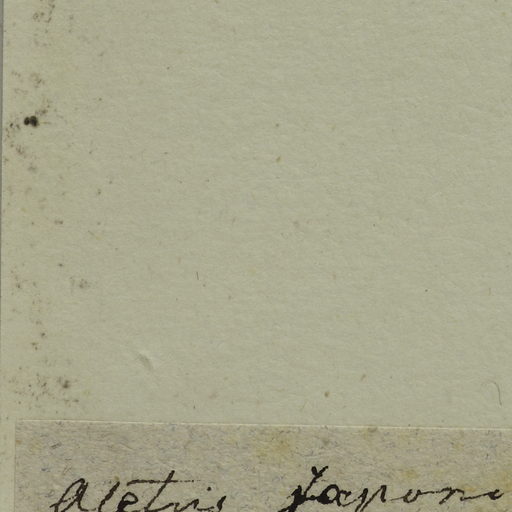 Aletris Japoni